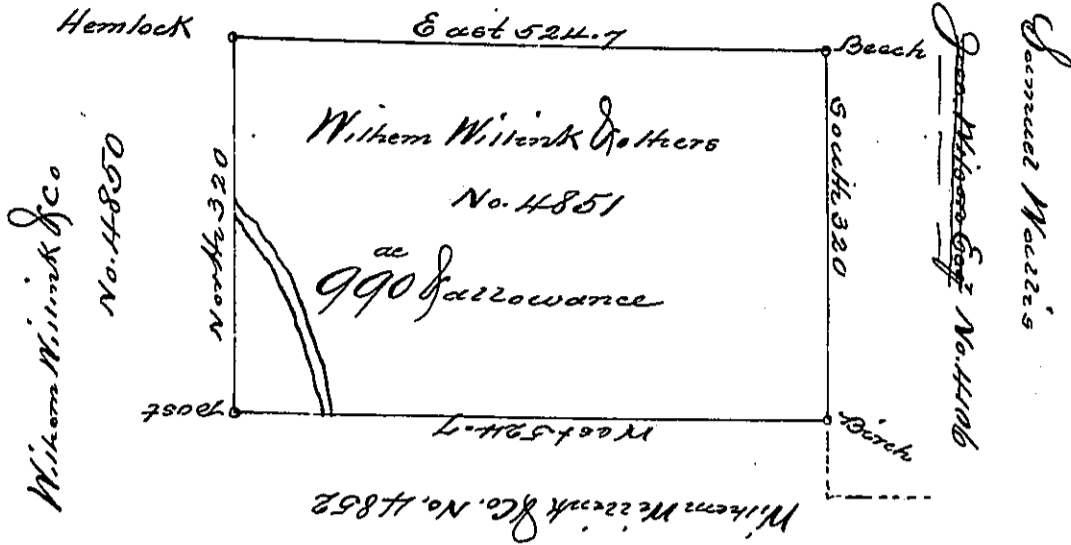 Hemlock
East 524.7
Beech
Wilhem Willink & others
No. 4851
990 ac & allowance
North 320
South 320
Post
West 524.7
Birch
Wilhem Willink & Co
No. 4850
Wilhem Willink & Co. No. 4852
No. 4106
Samuel Wallis